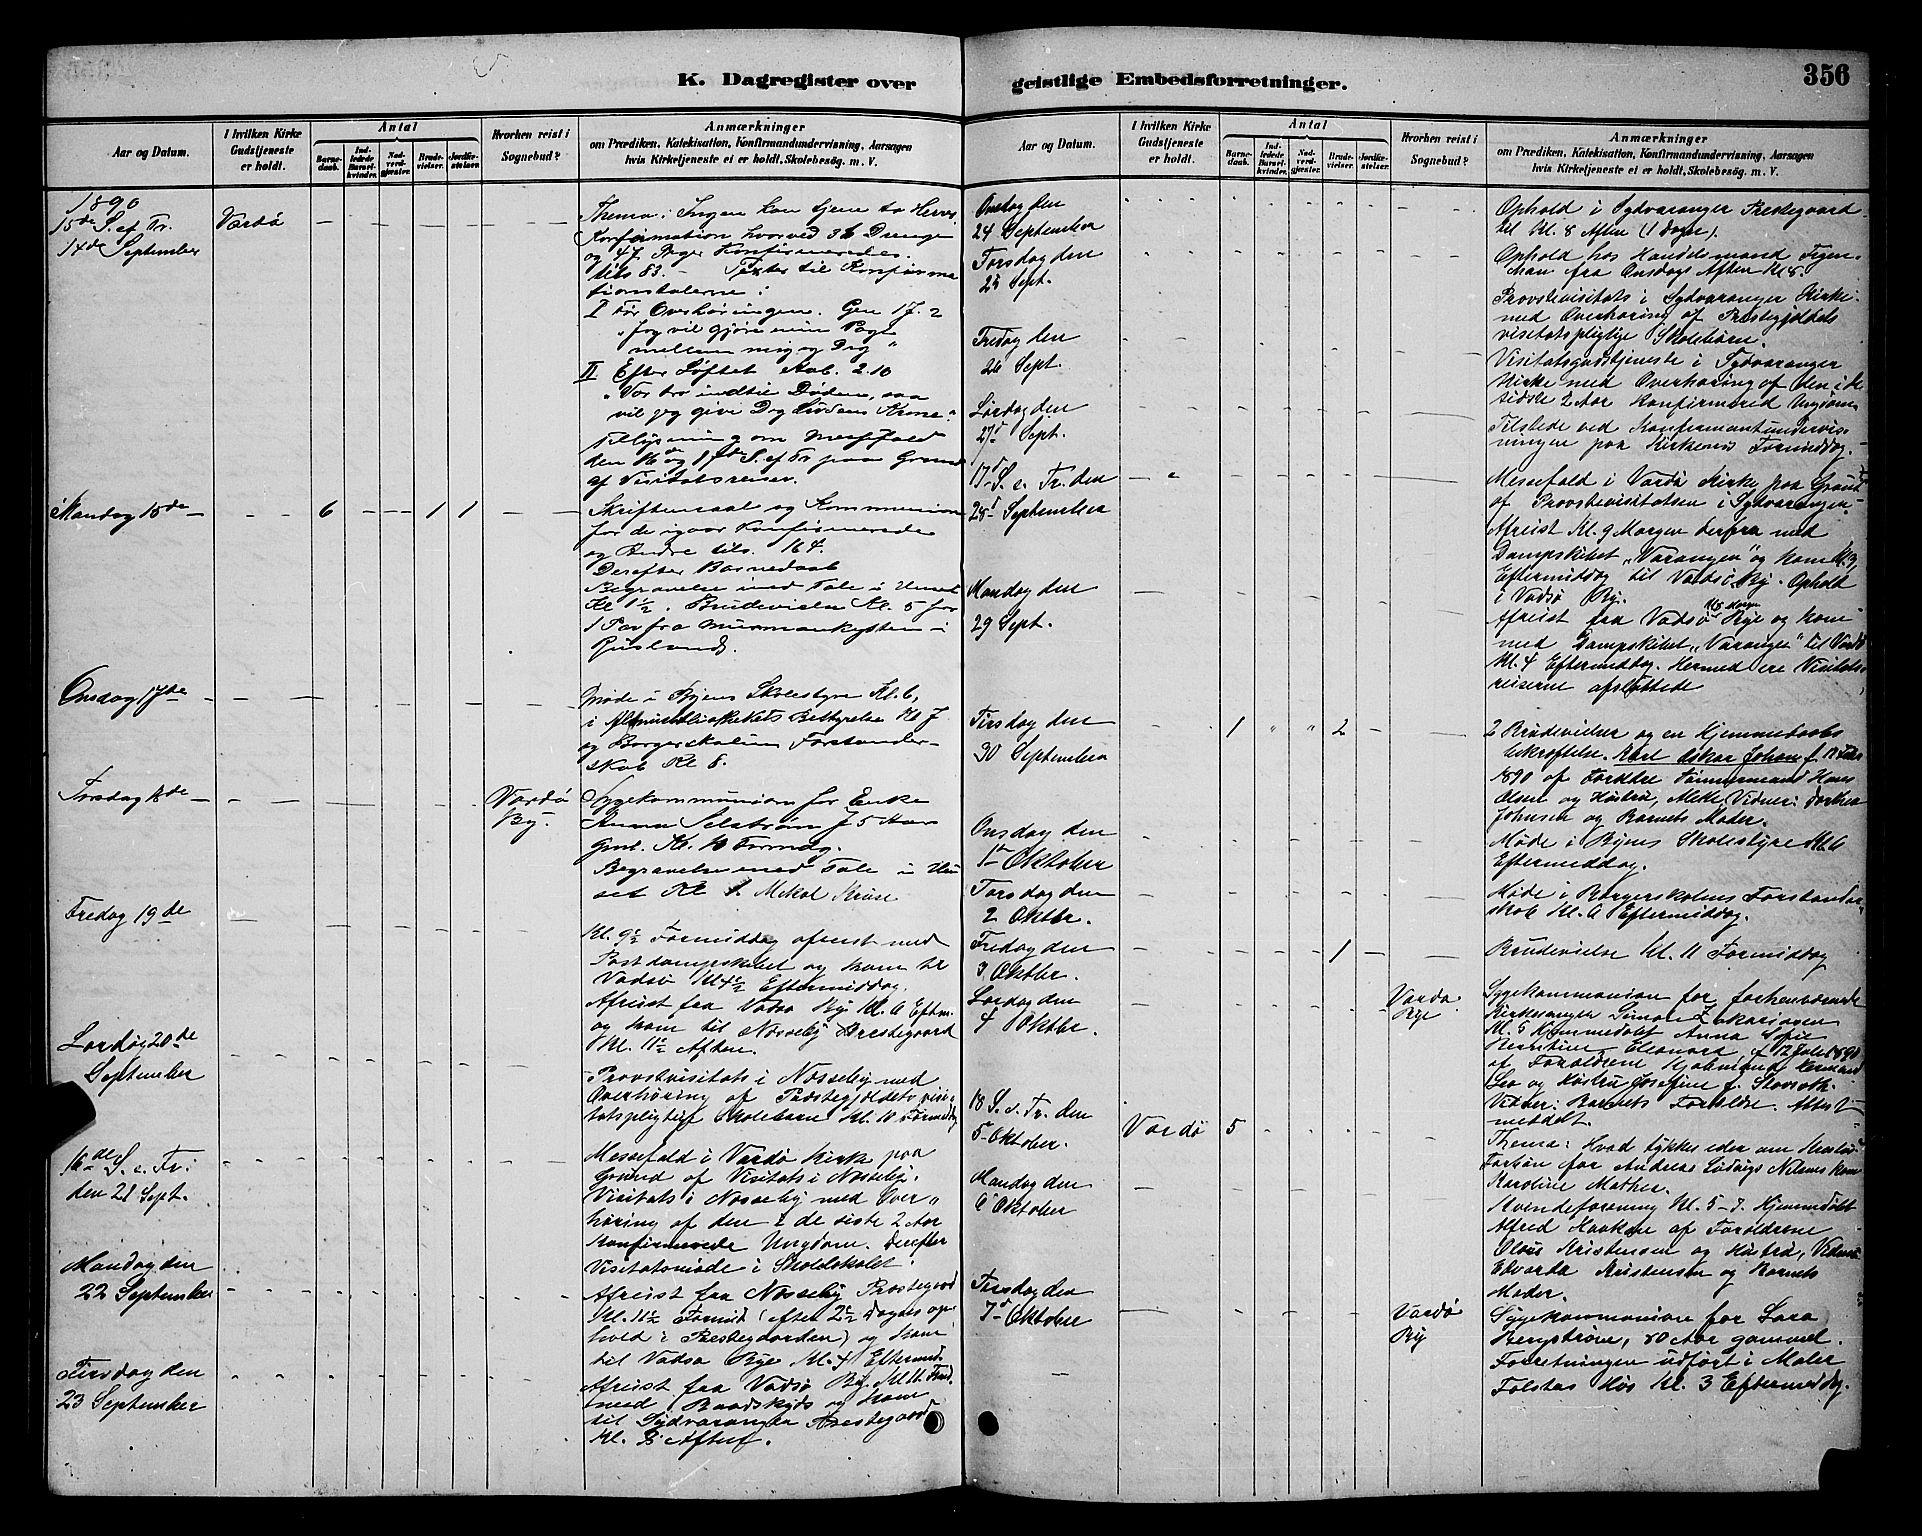 K. Dagregister over
geistlige Embedsforretninger.
356
Aar og Datum.
I hvilken Kirke
Gudstjeneste
er holdt.
Antal
Barne-
daab.
Ind-
ledede
Barsel-
kvinder.
Nad-
verd-
gjester.
Brude-
vielser.
Jordfæ-
stelser.
Hvorhen reist i
Sognebud?
Anmærkninger
om Prædiken, Katekisation, Konfirmandundervisning, Aarsagen
hvis Kirketjeneste ei er holdt, Skolebesög. m. V.
1890
15de S. ef Tr.
14de September
Vardö
Thema: Ingen kan tjene to Herrer
Konfirmation hvorved 36 Drenge
og 47 Piger Konfirmeredes.
tils 83. – Texter til Konfirma
tionstalerne:
I Før Overhøringen. Gen 17.2
"Jeg vil gjøre min Pagt
mellem mig og Dig"
II Efter Løftet Aab. 2.10
"Vær tro indtil Døden, saa
vil jeg give Dig Livsens Krone"
Tillysning om Messefald
den 16de og 17de S. ef Tr. paa Grund
af Visitatsreiser.
Mandag 15de
6
1
1
Skriftemaal og Kommunion
for de igaar Konfirmerede
og Andre tils. 164.
Derefter Barnedaab
Begravelse med Tale i Huset
Kl 1½. Brudevielse Kl. 5 for
1 Par fra Murmankysten i
Rusland.
Onsdag 17de
Møde i Byens Skolestyre Kl. 6,
i Almuebibliothekets Bestyrelse Kl 7
og Borgerskolens Forstander-
skab Kl 8.
Torsdag 18de
Vardö
By.
Sygekommunion for Enke
Anna Selström 75 Aar
Gml. Kl. 10 Formdg.
Begravelse med Tale i Hu
set Kl 1.
Fredag 19de
Kl. 9½ Formiddag afreist med
Postdampskibet og kom til
Vadsö Kl 4½ Eftermiddag.
Afreist fra Vadsö By Kl. 6 Eftm.
og kom til Nesseby Prestegaard
Kl. 11½ Aften.
Lørdag 20de
September
Provstvisitats i Nesseby med
Overhøring af Præstegjeldets visi-
tatspligtige Skolebørn Kl. 10 Formiddag
16de S. e. Tr.
den 21 Sept.
Messefald i Vardö Kirke paa
Grund af Visitats i Nesseby.
Visitats i Nesseby med Over
høring af den i de siste 2 Aar
Konfirmerede Ungdom. Derefter
Visitatsmøde i Skolelokalet.
Mandag den
22 September
Afreist fra Nesseby Prestegaard
Kl. 11½ Formid (efter 2½ Dagers op-
hold i Prestegaarden) og kom
til Vadsø Bye Kl. 4 Eftermid.
Tirsdag den
23 September
Afreist fra Vadsö By Kl. 11 Formd.
med Baadskyds og kom
til Sydvaranger Prestegaard
Kl. 8 Aften.
Aar og Datum.
I hvilken Kirke
Gudstjeneste
er holdt.
Antal
Barne-
daab.
Ind-
ledede
Barsel-
kvinder.
Nad-
verd-
gjester.
Brude-
vielser.
Jordfæ-
stelser.
Hvorhen reist i
Sognebud?
Anmærkninger
om Prædiken, Katekisation, Konfirmandundervisning, Aarsagen
hvis Kirketjeneste ei er holdt, Skolebesög. m. V.
Onsdag den
24 September
Ophold i Sydvaranger Prestegaard
til Kl. 8 Aften (1 Dager).
Torsdag den
25 Sept.
Ophold hos Handelsmand
fra Onsdags Aften Kl 8.
Fredag den
26 Sept.
Provstevisitats i Sydvaranger Kirke
med Overhøring af Prestegjeldets
visitatspligtige Skolebørn.
Lørdag den
27de Sept.
Visitatsgudstjeneste i Sydvaranger
Kirke med Overhøring af den i de
sidste 2 Aar Konfirmered Ungdom
Tilstede ved Konfirmantundervis-
ningen paa Kirkenes Formiddag.
17de S. e. Tr. den
28de September
Messefald i Vardö Kirke paa Grund
af Provstevisitatsen i Sydvaranger.
Afreist Kl. 9 Morgen derfra med
Dampskibet "Varanger" og kom Kl. 3
Eftermiddag til Vadsö By. Ophold
i Vadsø By.
Mandag den
29 Sept.
Kl 8 Morgen
Afreist fra Vadsö Bye og kom
med Dampskibet "Varanger" til Vardö
Kl. 4 Eftermiddag. Hermed ere Visitats
reiserne afsluttede
Tirsdag den
30 September
1
2
2 Brudevielser og en Hjemmedaabs
bekræftelse. Karl Oskar Johan f.
1890 af Forældre Tømmermand Hans
Olsen og Hustru, Vidner: Dorthea
Johnsen og Barnets Moder.
Onsdag den
1ste Oktober
Møde i Byens Skolestyre Kl. 6
Eftermiddag.
Torsdag den
2 Oktbr.
Møde i Borgerskolens Forstander
skab Kl. 6 Eftermiddag.
Fredag den
3 Oktbr.
1
Brudevielse Kl. 11 Formiddag
Lørdag den
4 Oktbr.
Vardø
Bye
Sygekommunion for forhenværende
Kirkesanger Simon Zakariasen
Kl. 5 Hjemmedøbt Anna Sofie
Eleonora, f 12 Juli 1890
af Forældrene
Leo og Hustru Josefine f.
Vidner: Barnets Forældre. Attest
meddelt.
18 S. e. Tr. den
5 Oktober.
Vardö
5
Thema: Hvad tykkes eder om Kristus
Forbøn for Andreas Ludvigs Nilsens Kone
Karoline Mather.
Mandag den
6 Oktober
Kvindeforening Kl. 5-7. Hjemmedøbt
Alfred Haakon af Forældrene
Olaus Kristensen og Hustru, Vidner
Edvarda Kristensen og Barnets
Moder.
Tirsdag den
7de Oktober
Vardö
By
Sygekommunion for Sara
Bergstrøm, 80 Aar gammel.
Forretningen udført i Maler
Tolstas Hus Kl. 3 Eftermiddag.